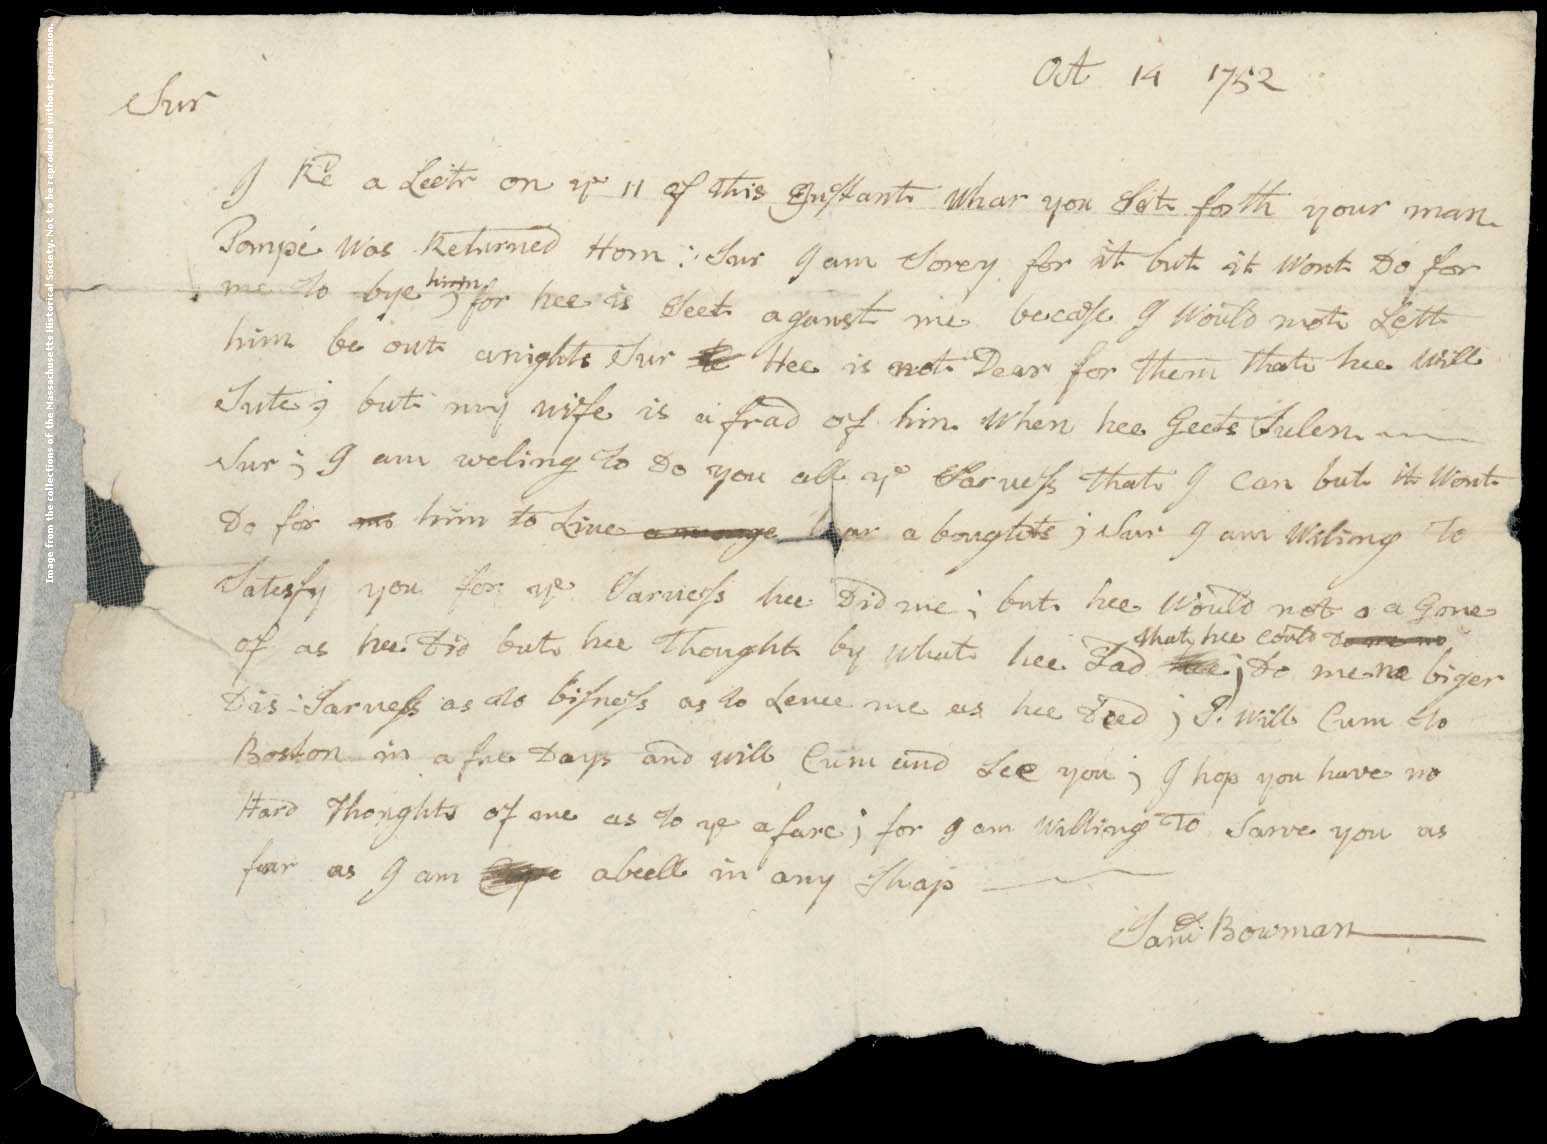 Image from the collections of the Massachusetts Historical Society. Not to be reproduced without permission.
Oct 14 1752
Sur
I Recd a Leetr on ye 11 of this Instant Whar you Set forth your man
Pompé Was Returned Hom : Sur I am Sorey for it but it Wont Do for
me to bye him ; for hee is Seet aganst me becase I Would not Lett
him be out anights Sur Hee is not Dear for them that hee Will
Sute ; but my wife is afrad of him When hee Geets Sulen
Sur ; I am weling to Do you all ye Sarvess that I Can but it Wont
Do for him to Live amonge hear a boughts ; Sur I am Wiling To
Satesfy you for ye Sarvess hee Did me ; but hee Would not a Gone
of as hee Did but hee Thought by What hee Sad
that hee could Do me no
; Do me no biger
Dis=Sarvess as to bisness as to Leve me as hee Deed ; I Will Cum to
Boston in a fue Days and will Cum and See you ; I hop you have no
Hard Thoughts of me as to ye afare ; for I am Willing To Sarve you as
far as I am abell in any Shap
Saml Bowman